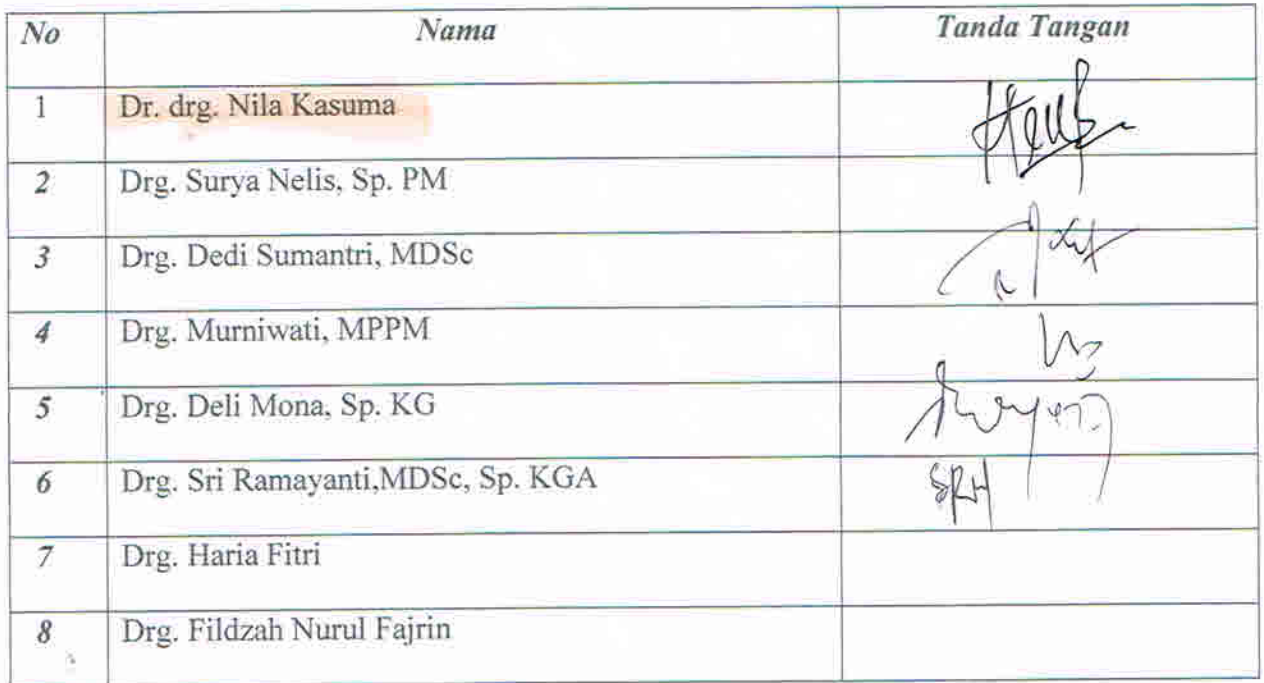 No Nama Tanda Tangan
1 Dr. drg. Nila Kasuma
2 Drg. Surya Nelis, Sp. PM
3 Drg. Dedi Sumantri, MDSc
4 Drg. Murniwati, MPPM
5 Drg. Deli Mona, Sp. KG
6 Drg. Sri Ramayanti,MDSc, Sp. KGA
7 Drg. Haria Fitri
8 Drg. Fildzah Nurul Fajrin